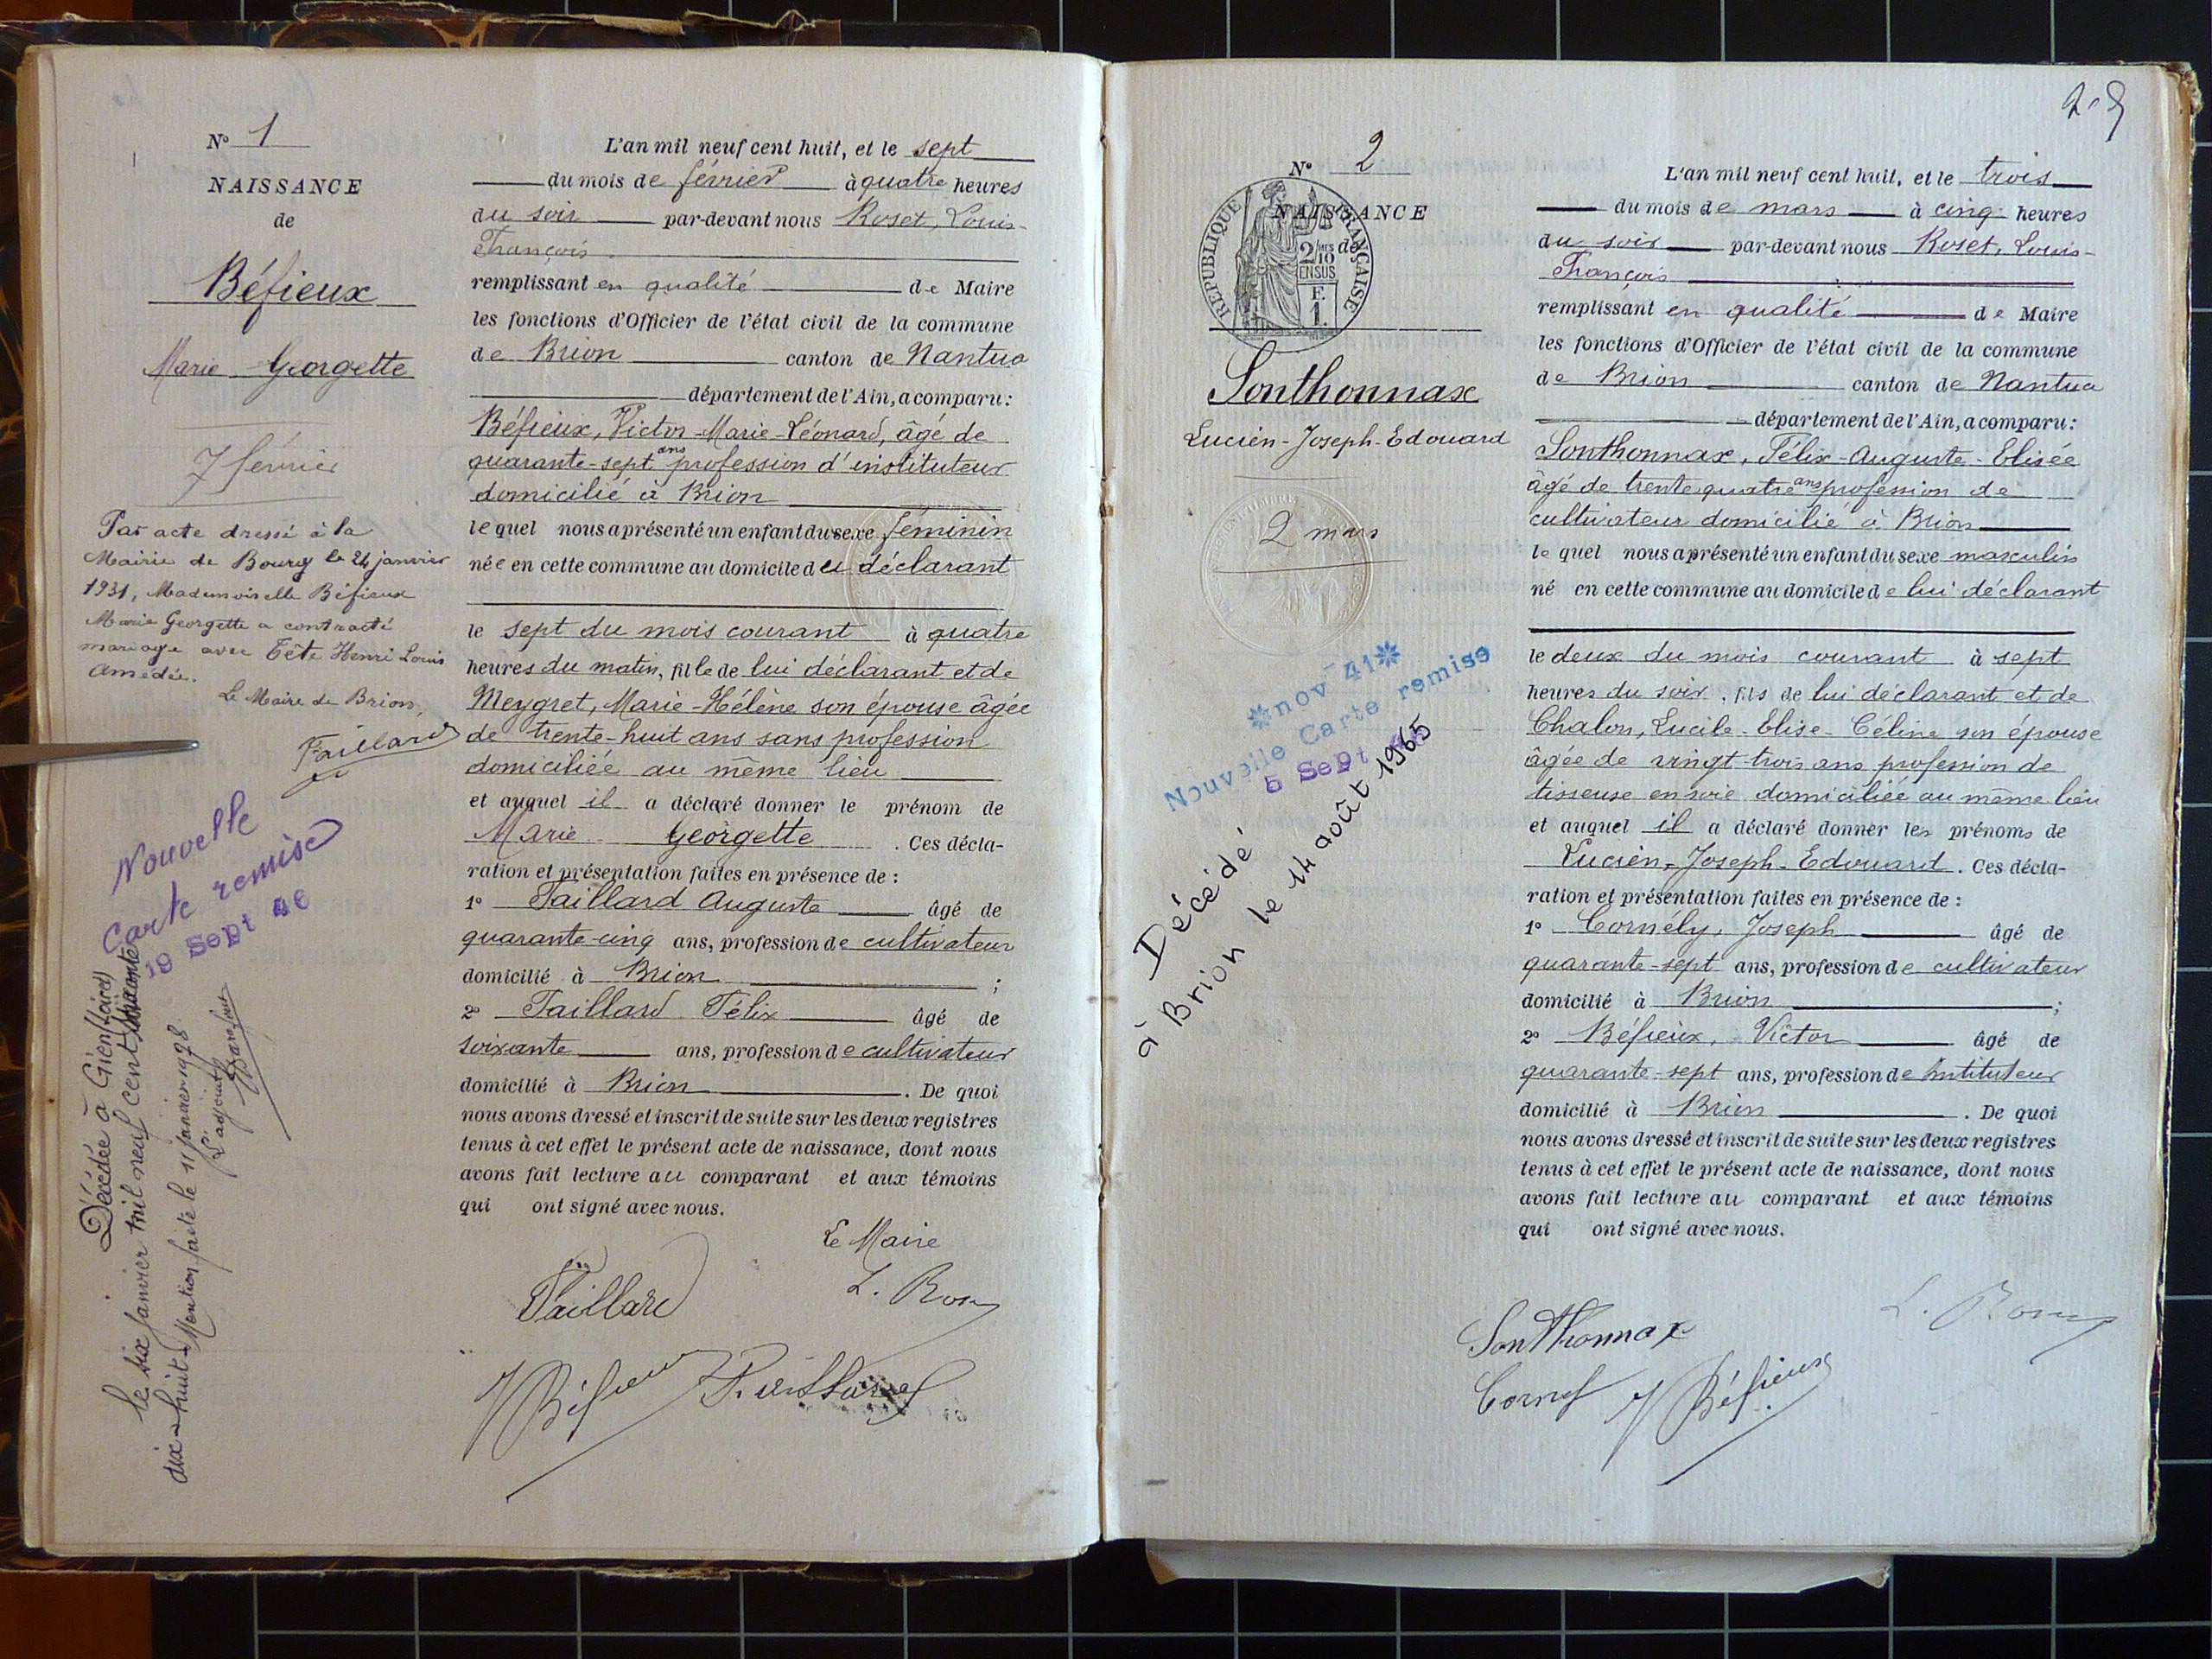 N° 1
NAISSANCE
de
Béfieux
Marie Georgette
7 février
Par acte dressé à la
Mairie de Bourg le 24 janvier
1931, Mademoiselle Béfieux
Marie Georgette a contracté
mariage avec Tête Henri Louis
Amédée.
Le Maire de Brion,
Taillard
Nouvelle
Carte remise
19 Sept 46
Décédée à Gien (Loiret)
le six janvier mil neuf cent soixante
dix-huit. Mention faite le 11 janvier 1978
L'adjoint
L'an mil neuf cent huit, et le sept
du mois de février à quatre heures
du soir par-devant nous Roset, Louis-
François
remplissant en qualité de Maire
les fonctions d'Officier de l'état civil de la commune
de Brion canton de Nantua
département de l'Ain, a comparu:
Béfieux, Victor-Marie-Léonard, âgé de
quarante-sept ans profession d'instituteur
domicilié à Brion
lequel nous a présenté un enfant du sexe féminin
née en cette commune au domicile du déclarant
le sept du mois courant à quatre
heures du matin, fille de lui déclarant et de
Meygret, Marie-Hélène son épouse âgée
de trente-huit ans sans profession
domiciliée au même lieu
et auquel il a déclaré donner le prénom de
Marie Georgette. Ces décla-
ration et présentation faites en présence de :
1° Taillard Auguste âgé de
quarante-cinq ans, profession de cultivateur
domicilié à Brion ;
2° Taillard Félix âgé de
soixante ans, profession de cultivateur
domicilié à Brion. De quoi
nous avons dressé et inscrit de suite sur les deux registres
tenus à cet effet le présent acte de naissance, dont nous
avons fait lecture au comparant et aux témoins
qui ont signé avec nous.
Le Maire
Taillard
L. Roset
V Béfieux
2
N° 2
NAISSANCE
de
RÉPUBLIQUE FRANÇAISE
2/10
EN SUS
F.
1.
Sonthonnax
Lucien-Joseph-Edouard
2 mars
*nov 41*
Nouvelle Carte remise
5 Sept
Décédé
à Brion le 14 août 1965
L'an mil neuf cent huit, et le trois
du mois de mars à cinq heures
du soir par-devant nous Roset, Louis-
François
remplissant en qualité de Maire
les fonctions d'Officier de l'état civil de la commune
de Brion canton de Nantua
département de l'Ain, a comparu:
Sonthonnax, Félix-Auguste-Elisée
âgé de trente quatre ans profession de
cultivateur domicilié à Brion
lequel nous a présenté un enfant du sexe masculin
né en cette commune au domicile de lui déclarant
le deux du mois courant à sept
heures du soir, fils de lui déclarant et de
Chalon, Lucile-Elise-Céline son épouse
âgée de vingt-trois ans profession de
tisseuse en soie domiciliée au même lieu
et auquel il a déclaré donner les prénoms de
Lucien-Joseph-Edouard. Ces décla-
ration et présentation faites en présence de :
1° Cornély, Joseph âgé de
quarante-sept ans, profession de cultivateur
domicilié à Brion ;
2° Béfieux, Victor âgé de
quarante-sept ans, profession de Instituteur
domicilié à Brion. De quoi
nous avons dressé et inscrit de suite sur les deux registres
tenus à cet effet le présent acte de naissance, dont nous
avons fait lecture au comparant et aux témoins
qui ont signé avec nous.
Sonthonnax
L. Roset
V Béfieux